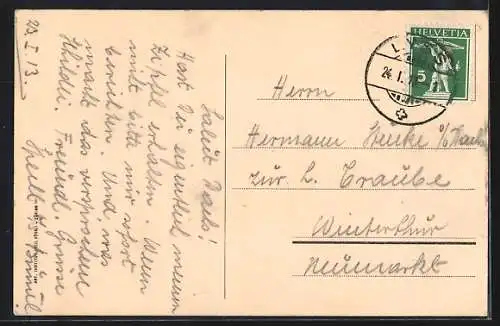 23. I. 13.
Salut Hals!
Hast Du eigentlich meinen
Zipfel erhalten. Wenn
nicht bitte mir sofort
berichten. Und was
macht das versprochene
Freund. Grüsse
HELVETIA
5
24. I.
Herrn
Hermann
zur L. Traube
Winterthur
Neumarkt